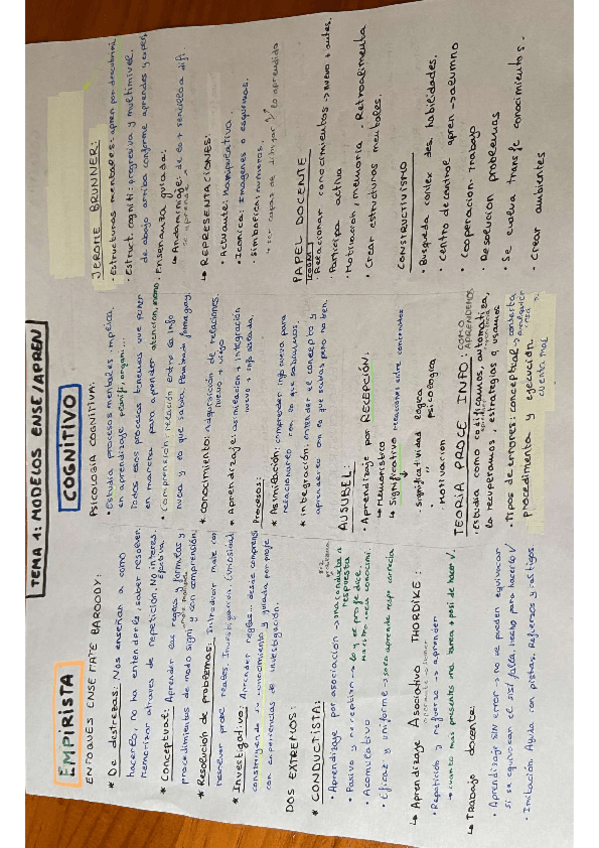 TEMA 1: MODELOS ENSE/APREN
EMPIRISTA
ENFOQUES ENSE MATE BAROODY:
* De destrezas: Nos enseñan a como
hacerlo, no ha entenderlo, saber resolver.
Memorizar atraves de repetición. No interes.
* Conceptual: Aprender las reglas y formulas y
procedimientos de modo signi y con comprensión
* Resolución de problemas: Introducir mate con
resolver probl reales. Investigativa. (Vivencias)
* Investigativo: Aprender reglas... desde comprensi
construyendo su conocimiento y guiada por profe
con experiencias de investigación.
DOS EXTREMOS:
* CONDUCTISTA:
• Aprendizaje por asociación → una conducta a
respuesta
• Pasivo y no repetitivo → lo q se profe dice.
• Acumulativo
• Eficaz y uniforme → sean aprende respt correcta
↳ Aprendizaje Asociativo THORDIKE:
• Repetición y refuerzo → aprender
→ cuanto mas presentes una tarea + posi de hacer V
↳ Trabajo docente:
• Aprendizaje sin error → no se pueden equivocar
si se equivocan el sist falla, hecho para hacerlo V
• Imitación. Ayuda con pistas. Refuerzos y castigos
COGNITIVO
PSICOLOGIA COGNITIVA:
• Estudia procesos mentales implica.
en aprendizaje: planifi, organi...
Todos esos procesos tenemos que poner
en marcha para aprender: atencion, memo
• Comprension: relación entre la info
nueva y lo que sabia. Pensaba forma guay.
* Conocimiento: Adquisición de relaciones.
nuevo + viejo
* Aprendizaje: asimilación + integración
nuevo + info aislada.
Procesos:
* Asimilación: comprender info nueva para
relacionarlo con lo que sabíamos.
* Integración: entender el concepto y
aprenderlo con lo que sabias pero no bien.
AUSUBEL:
• Aprendizaje por RECEPCIÓN:
↳ Memoristico
↳ Significativo relacionar entre contenidos
↓
• significatividad logica
• " psicologica
• Motivacion
TEORIA PROCE INFO: COMO APRENDEMOS
• Estudia como codificamos, automatiza,
lo recuperamos, estrategias q usamos
• Tipos de errores: conceptual →
procedimental y ejecución →
JEROME BRUNNER:
• Estructuras mentales: apren por descubrimi
• Estruct. cogniti: progresiva y multinivel.
de abajo arriba conforme aprendes y exper.
• Enseñanza guiada:
↳ Andamiaje: de lo + sencillo a difi.
↳ REPRESENTACIONES:
• Actuante: Manipulativo.
• Iconica: Imagenes o esquemas.
• Simbolica: numeros.
↳ ser capaz de dibujar V lo aprendido
PAPEL DOCENTE
• Relacionar conocimientos → nuevo + antes.
• Participa activa
• Motivación, memoria, Retroalimenta
• Crear estructuras mentales.
CONSTRUCTIVISMO
• Busqueda contex des. habilidades.
• Centro de control apren → alumno
• Cooperacion-trabajo
• Resolucion problemas
• Se evalua transfe conocimientos.
• Crear ambientes